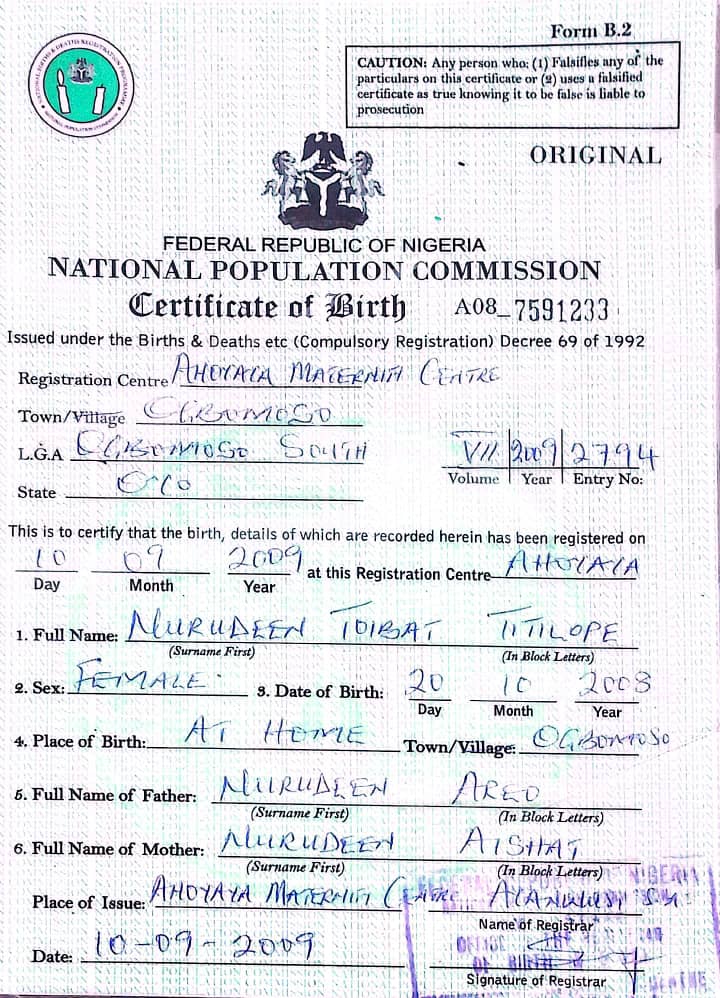 Form B.2
CAUTION: Any person who: (1) Falsifies any of the
particulars on this certificate or (2) uses a falsified
certificate as true knowing it to be false is liable to
prosecution
ORIGINAL
FEDERAL REPUBLIC OF NIGERIA
NATIONAL POPULATION COMMISSION
Certificate of Birth A08-7591233
Issued under the Births & Deaths etc (Compulsory Registration) Decree 69 of 1992
Registration Centre AHOYAYA MATERNITY CENTRE
Town/Village OGBOMOSO
L.G.A OGBOMOSO SOUTH
VII 2009 2794
Volume Year Entry No:
State OYO
This is to certify that the birth, details of which are recorded herein has been registered on
10 09 2009 at this Registration Centre AHOYAYA
Day Month Year
1. Full Name: NURUDEEN TOIBAT TITILOPE
(Surname First) (In Block Letters)
2. Sex: FEMALE 3. Date of Birth: 20 10 2008
Day Month Year
4. Place of Birth: AT HOME Town/Village: OGBOMOSO
5. Full Name of Father: NURUDEEN AREO
(Surname First) (In Block Letters)
6. Full Name of Mother: NURUDEEN AISHAT
(Surname First) (In Block Letters)
Place of Issue: AHOYAYA MATERNITY CENTRE
Name of Registrar
Date: 10-09-2009
Signature of Registrar